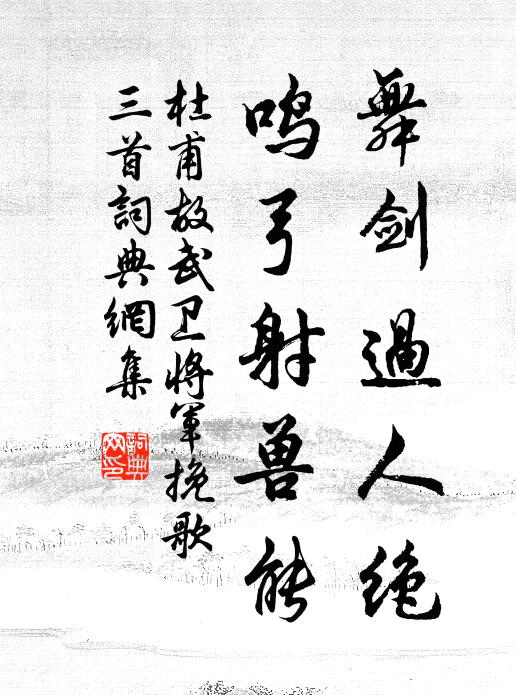 舞剑過人绝
鸣弓射兽能
杜甫故武卫将軍挽歌
三首詞典網集
詞典
网印